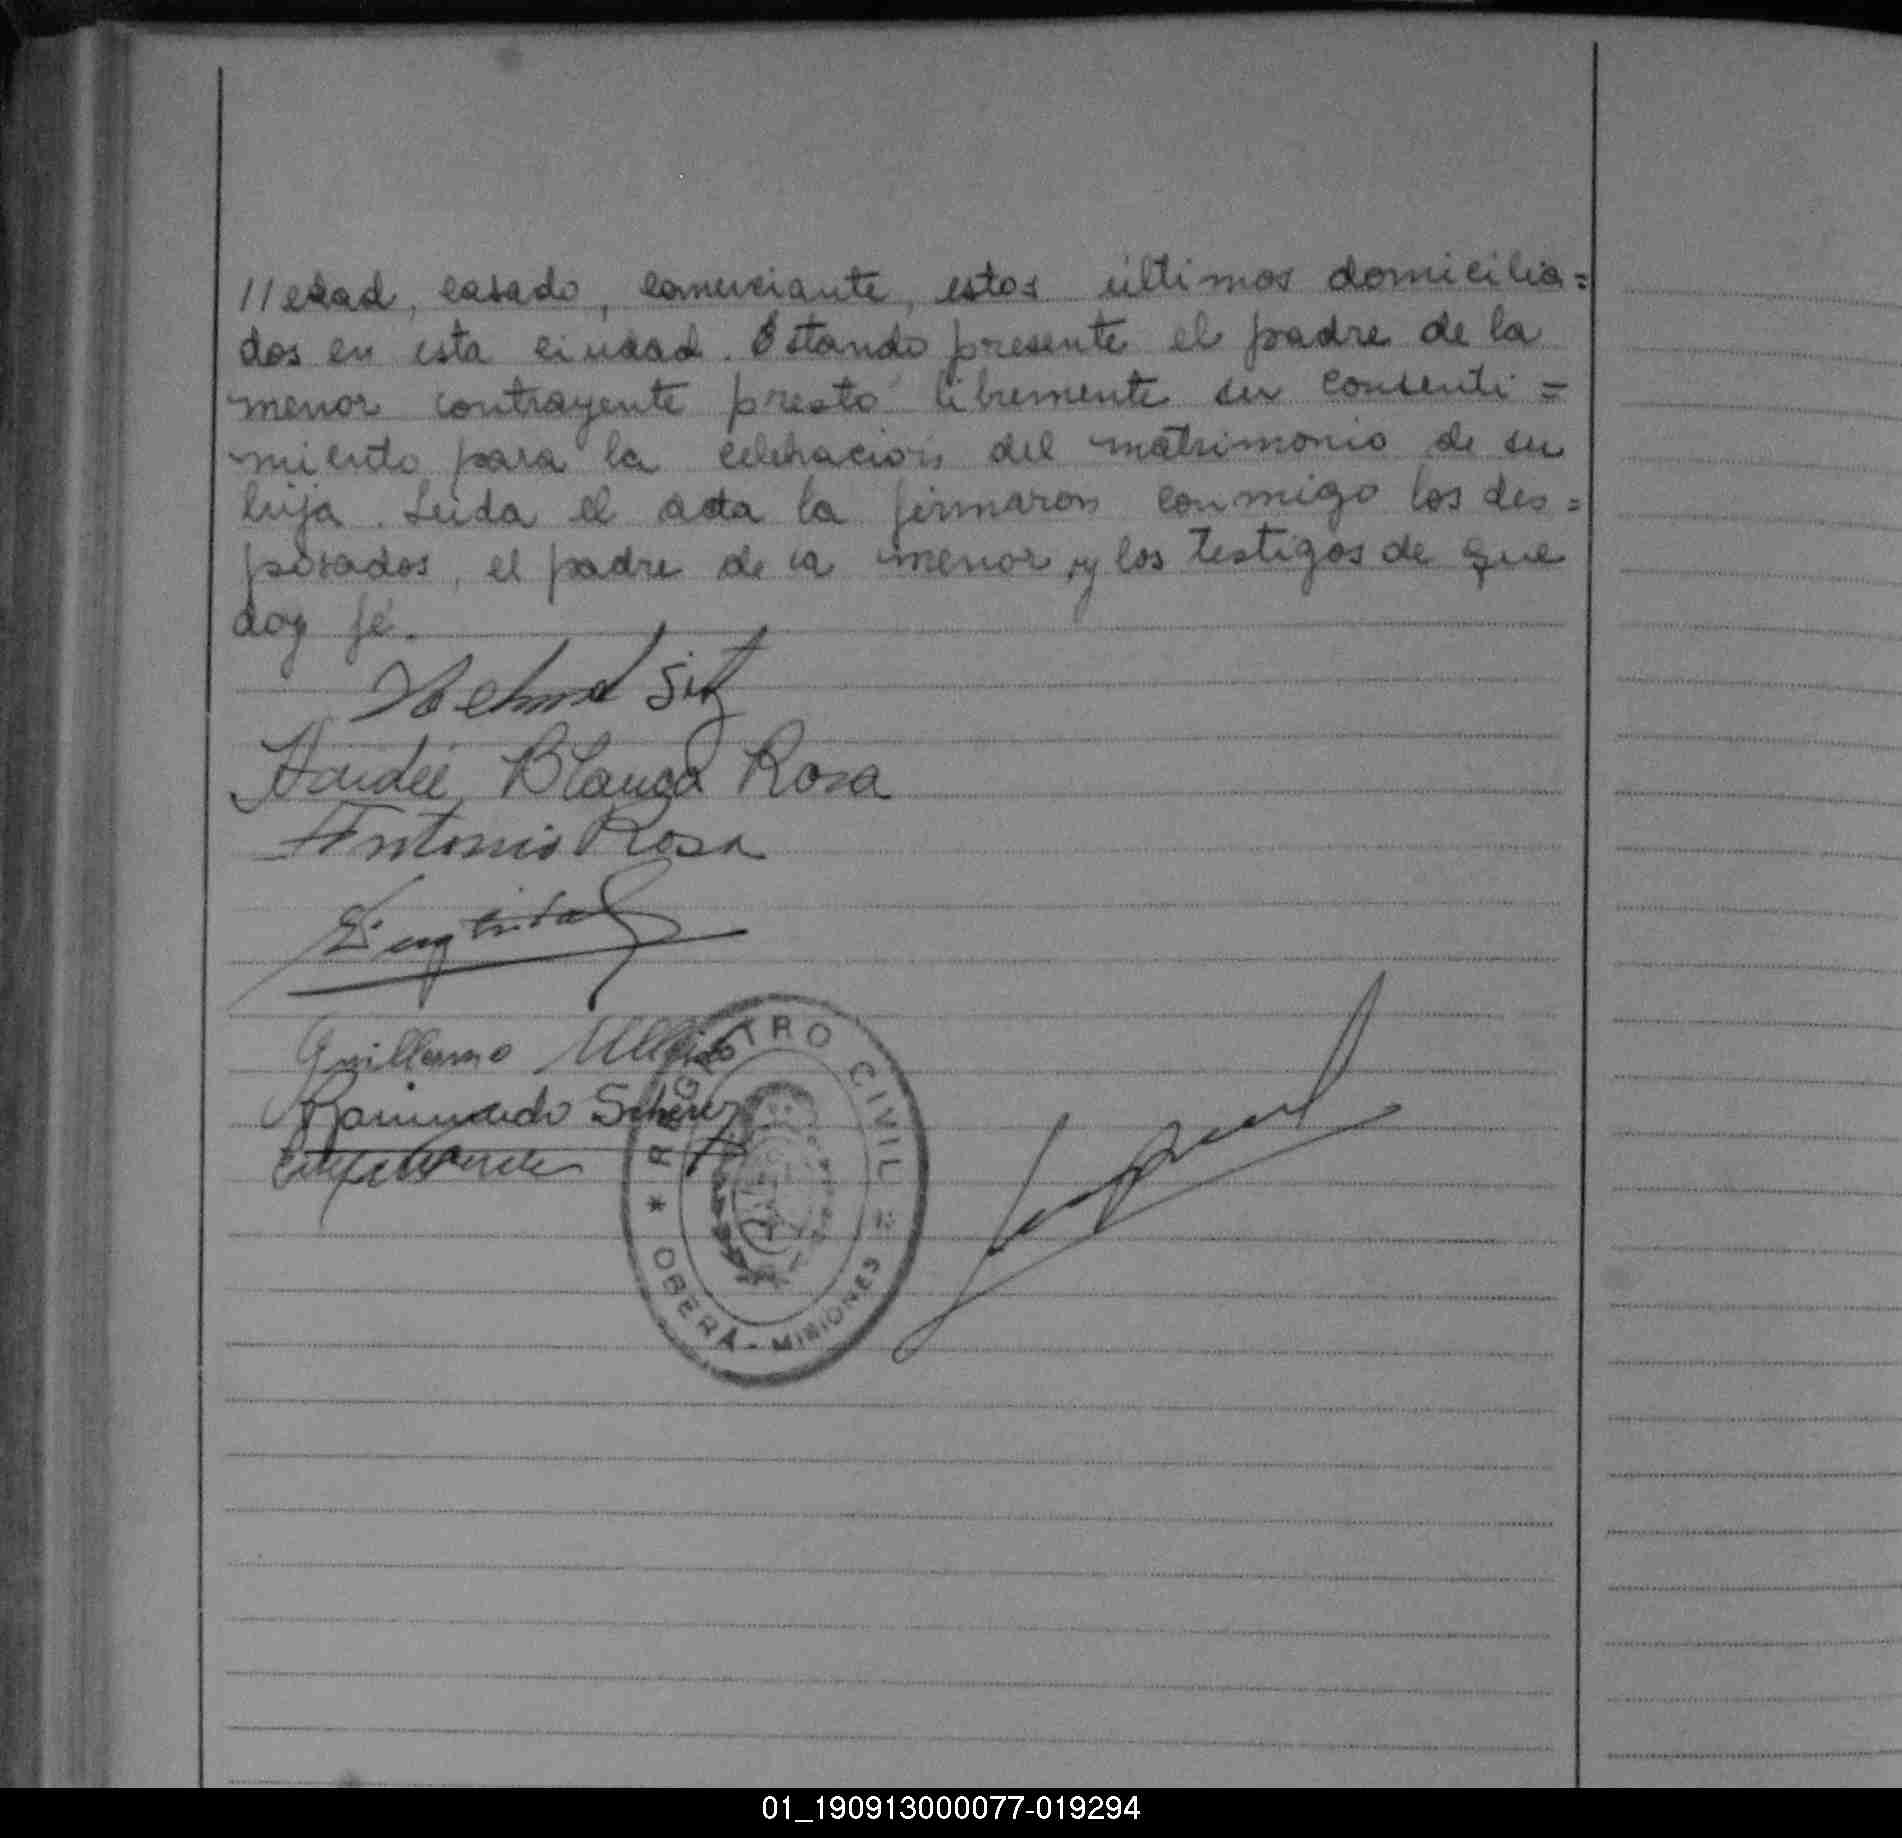 //edad, casado, comerciante, estos últimos domicilia=
dos en esta ciudad. Estando presente el padre de la
menor contrayente prestó libremente su consenti=
miento para la celebración del matrimonio de su
hija. Leida el acta la firmaron conmigo los des=
posados, el padre de la menor y los testigos de que
doy fé.
Sitz
Haidée Blanca Rosa
Antonio Rosa
Guillermo
Raimundo Scherer
REGISTRO CIVIL
* OBERÁ - MISIONES
01_190913000077-019294